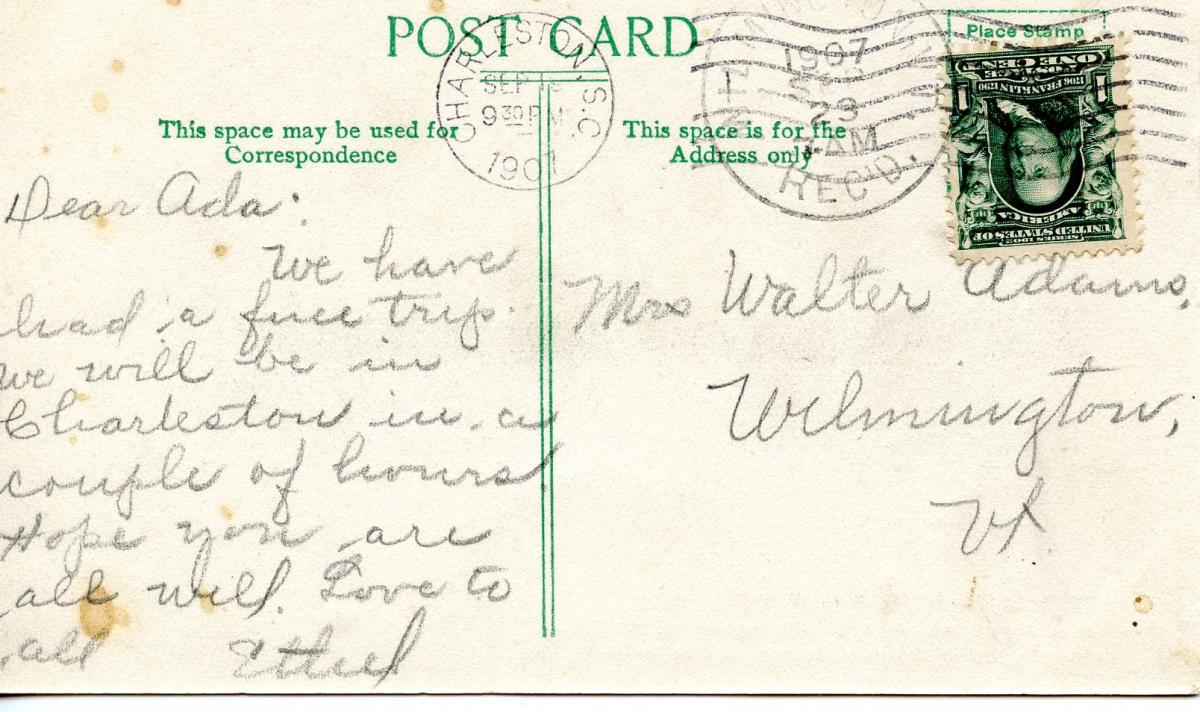 POST CARD
CHARLESTON, S.C.
SEP
9 30 P.M.
1907
1907
23
AM
REC'D.
Place Stamp
ONE CENT
POSTAGE
1706 FRANKLIN 1790
1 1
AMERICA
UNITED STATES OF
SERIES 1902
This space may be used for
Correspondence
This space is for the
Address only
Dear Ada:
We have
had a fine trip.
We will be in
Charleston in a
couple of hours
Hope you are
all well. Love to
all Ethel
Mrs Walter Adams,
Wilmington,
Vt.